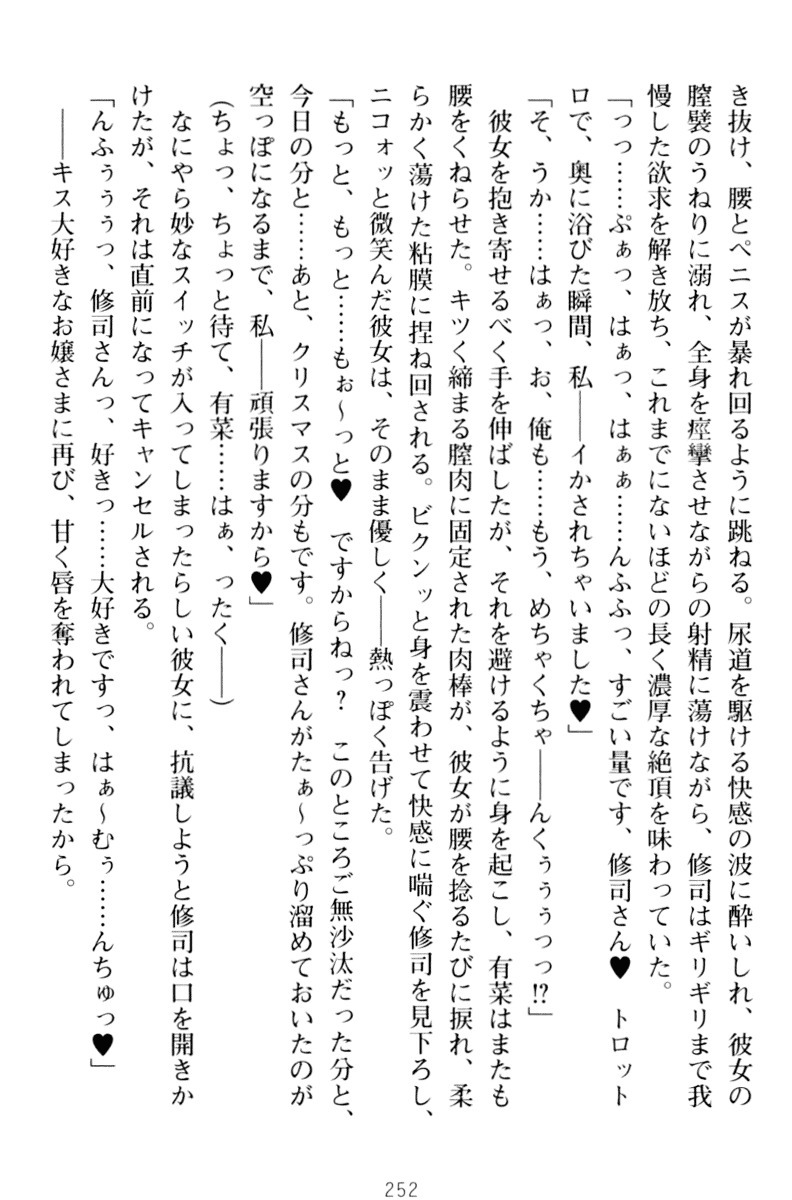 き抜け、腰とペニスが暴れ回るように跳ねる。尿道を駆ける快感の波に酔いしれ、彼女の
膣襞のうねりに溺れ、全身を痙攣させながらの射精に蕩けながら、修司はギリギリまで我
慢した欲求を解き放ち、これまでにないほどの長く濃厚な絶頂を味わっていた。
「っっ……ぷぁっ、はぁっ、はぁぁ……んふふっ、すごい量です、修司さん♥　トロット
ロで、奥に浴びた瞬間、私――イかされちゃいました♥」
「そ、うか……はぁっ、お、俺も……もう、めちゃくちゃ――んくぅぅぅっっ!?」
彼女を抱き寄せるべく手を伸ばしたが、それを避けるように身を起こし、有菜はまたも
腰をくねらせた。キツく締まる膣肉に固定された肉棒が、彼女が腰を捻るたびに捩れ、柔
らかく蕩けた粘膜に捏ね回される。ビクンッと身を震わせて快感に喘ぐ修司を見下ろし、
ニコォッと微笑んだ彼女は、そのまま優しく――熱っぽく告げた。
「もっと、もっと……もぉ～っと♥　ですからねっ？　このところご無沙汰だった分と、
今日の分と……あと、クリスマスの分もです。修司さんがたぁ～っぷり溜めておいたのが
空っぽになるまで、私――頑張りますから♥」
(ちょっ、ちょっと待て、有菜……はぁ、ったく――)
なにやら妙なスイッチが入ってしまったらしい彼女に、抗議しようと修司は口を開きか
けたが、それは直前になってキャンセルされる。
「んふぅぅぅっ、修司さんっ、好きっ……大好きですっ、はぁ～むぅ……んちゅっ♥」
――キス大好きなお嬢さまに再び、甘く唇を奪われてしまったから。
252